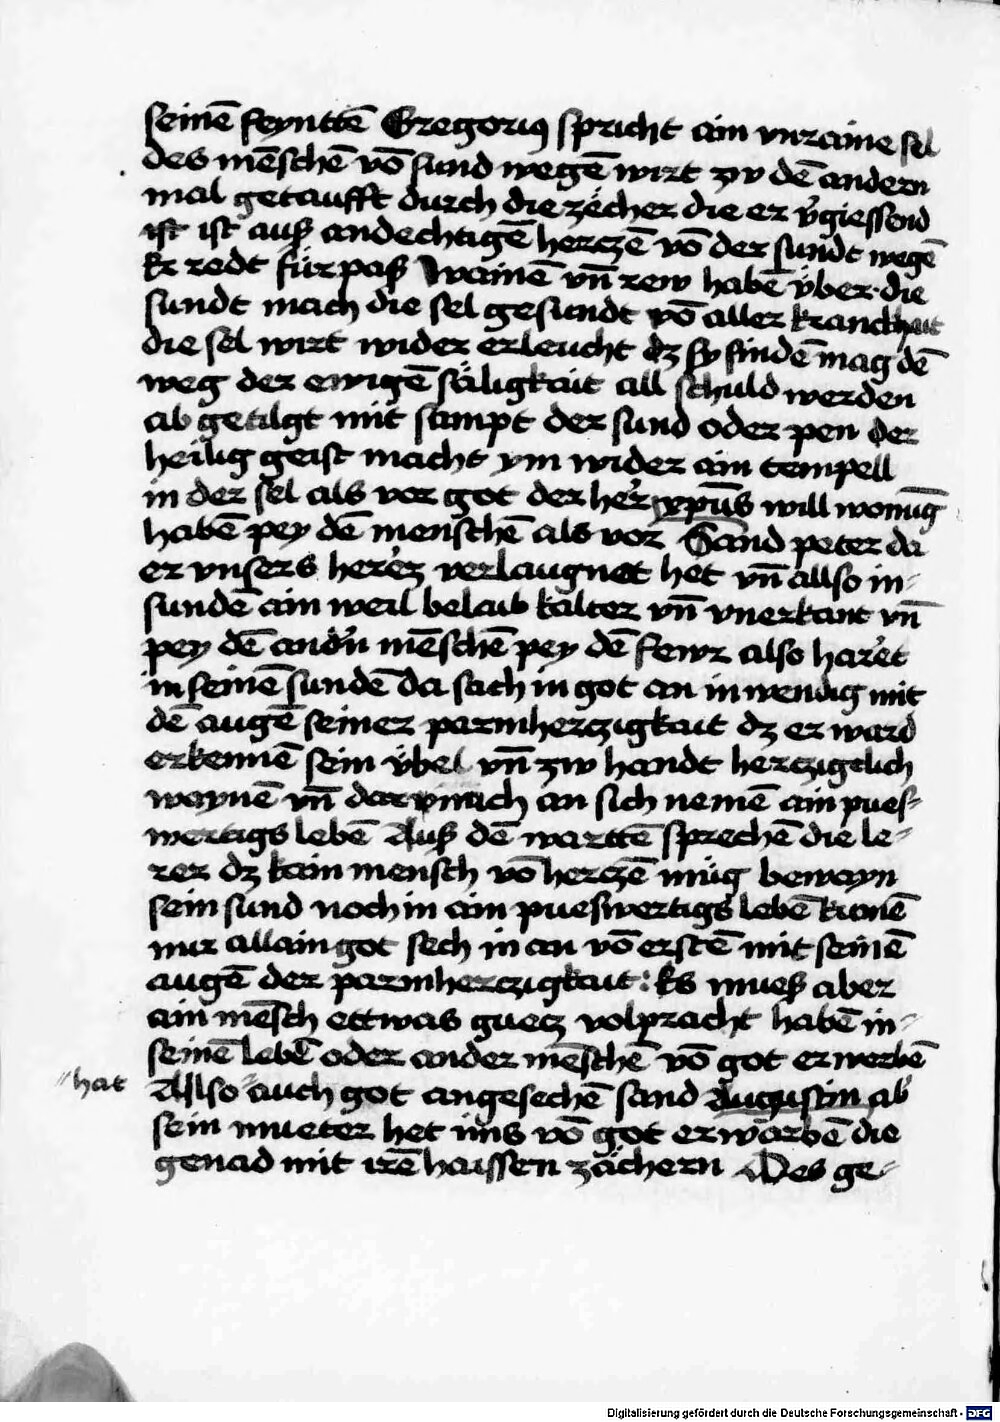 seinē feynttē Gregorius spricht ain vnraine sel
des mēschē vō sund wegē wirt zw dē andern
mal getaufft durch die zecher die er v̓giessend
ist ist auß andechtigē herczē vō der sundt wegē
Er redt fürpaß Wainē vn̄ rew habē v̈ber die
sundt mach die sel gesundt vō aller kranckhait
die sel wirt wider erleucht dz sy findē mag dē
weg der ewigē säligkait all schuld werden
ab getilgt mit sampt der sund oder pen der
heilig geist macht ym wider ain tempell
in der sel als vor got der her̓ xp̄us will wonūg
habē pey dē menschē als vor Sand peter da
er vnsers herēz verlaugnet het vn̄ allso in-
sundē ain weil belaib kalter vn̄ vnerkant vn̄
pey dē and̓n mēschē pey dē fewr also har̓et
in seinē sundē da sach in got an inwendig mit
dē augē seiner parmherczigkait dz er ward
erkennē sein v̈bel vn̄ zw handt herczigelich
waynē vn̄ dar an sich nemē ain pues-
wertigs lebē Auß dē warttē sprechē die le-
rer dz kain mensch vō herczē müg bewayn
sein sund noch in ain pueswertigs lebē kumē
nur allain got sech in an vō erstē mit seinē
augē der parmherczigkait: Es mueß aber
ain mēsch ettwas guecz volpracht habē in-
seinē lebē oder ander mēschē vō got erwerbē
"hat
Allso "auch got angesechē sand Augustin ab
sein mueter het ims vō got erwarbē die
genad mit irē haissen zächern Des ge-